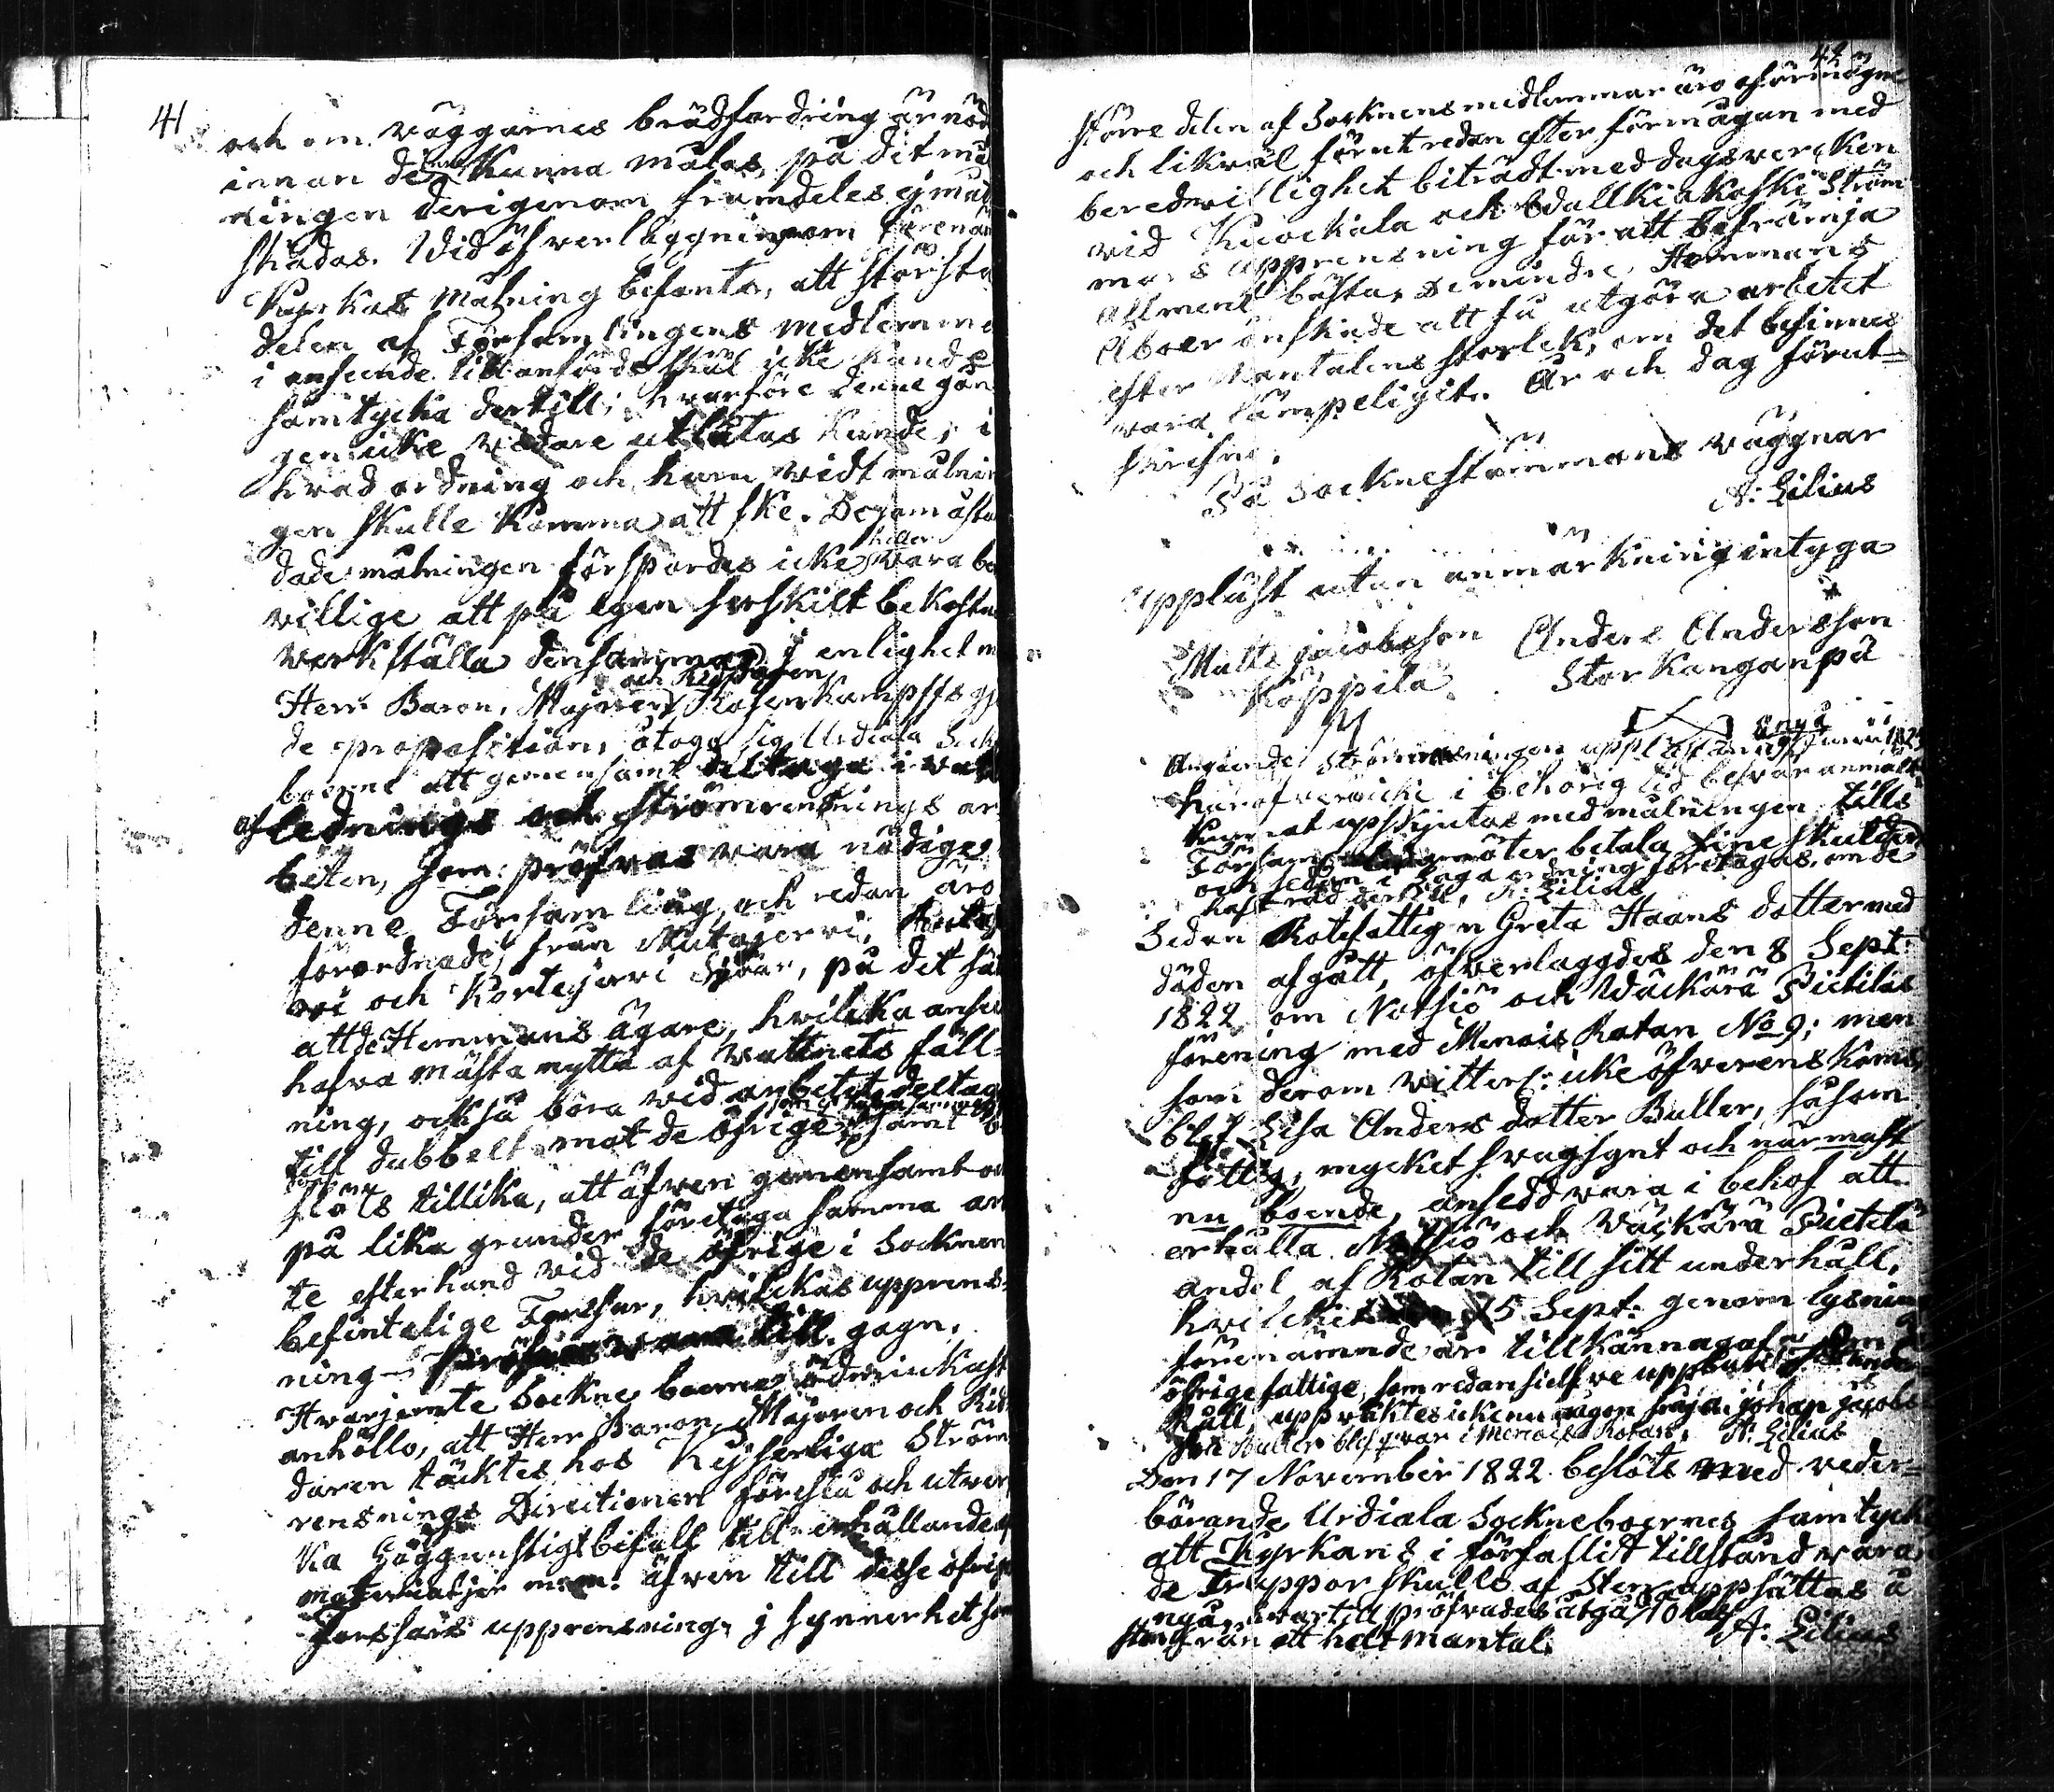 41
och om väggarnes brädfordring är nöd
innan de ännu kunna målas, på det må
ningen derigenom framdeles ej må
skadas. Wid öfverläggning om förenämn
Kyrkas målning befants, att största
delen af Församlingens medlemma
i anseende till anförde skäl icke kunde
samtycka dertill; hvarföre denne gån
gen icke vidare utlåtas kunde, i
hvad ordning och huru vidt målnin
gen skulle komma att ske. De som åstun
dade målningen förspordes icke heller vara be
villige att på egen serskilt bekostn
verkställa densamma. I enlighet m
Herr Baron, Majoren och Riddaren Rosenkampffs gj
de proposition, åtogo sig Urdiala Sock
boerne att gemensamt deltaga i vatt
aflednings och strömrensnings ar
beten, som pröfvas vara nödiga
denne Församling, och redan äro
förordnade, från Nutajervi,
vi och Kortejervi Sjöar, på det sä
att de Hemmans ägare, hvilka anses
hafva mästa nytta af vattnets fäll-
ning, också böra vid arbetet deltaga
till dubbelt mot de öfrige samt
slöts tillika, att äfven gemensamt oc
på lika grunder företaga samma ar
te efterhand vid de öfrige i Socknen
befintelige Forssar, hvilkas upprens-
ning pröfvas vara till gagn.
Hvarjemte Sockne boerne ödmiukast
anhöllo, att Herr Baron, Majoren och Rid
daren täcktes hos Kejserliga Ström
rensnings Directionen föreslå och utver
ka Höggunstigt bifall till erhållande a
materialier m: m: äfven till desse öfrig
Forssars upprensning, i synnerhet som
42
större delen af Socknens medlemmar äro oförmögne
och likväl förut redan efter förmågan med
beredvillighet biträdt med dagsvercken
vid Kuockala och Wallkiakoski Ström
mars upprensning för att befrämja
allment bästa. De mindre Hemmans
Åboer önskade att få utgöra arbetet
efter Mantalens storlek, om det befinnes
vara lämpeligit. År och dag förut-
skrefne.
På Sockneståmmans vägnar
A: Lilius
Uppläst utan anmärkning intyga
Matts Jacobsson Anders Andersson
Köppilä Stor Kanganpä
Angående Strömrensningen uppläst
häröfver icke i behörig tid besvär anmält
uppskjutas med målningen tills
Församl betala sine skulder
och sedan i laga ordning företagas, om de
haft råd dertill. A: Lilius
Sedan Rotefattig n Greta Haans dotter med
döden afgått, öfverlaggdes den 8 Sept:
1822 om Notsiö och Wäckärä Pietiläs
förening med Menois Rotan No 9; men
som derom vitters: icke öfverens koms,
blef Lisa Anders dotter Buller, såsom
fattig, mycket svagsynt och närmast
nu boende, ansedd vara i behof att
erhålla Notsiö och Wäckärä Pietilä
andel af Rotan till sitt underhåll,
hvilcket 15 Sept: genom lysning
förenämnde år tillkännagafs. Om
öfrige fattige, som redan sielfve uppburit
håll, upväktes icke nu någon fråga. Johan Jacobs
son Buller blef qvar i Menois Rotan. A: Lilius
Den 17 November 1822 beslöts med veder-
börande Urdiala Sockneboernes samtycke
att Kyrkans i förfallit tillstånd varan
de Trappor skulle af Sten uppsättas å
nyo, hvartill pröfvades utgå 10 lass
sten från ett helt mantal. A: Lilius